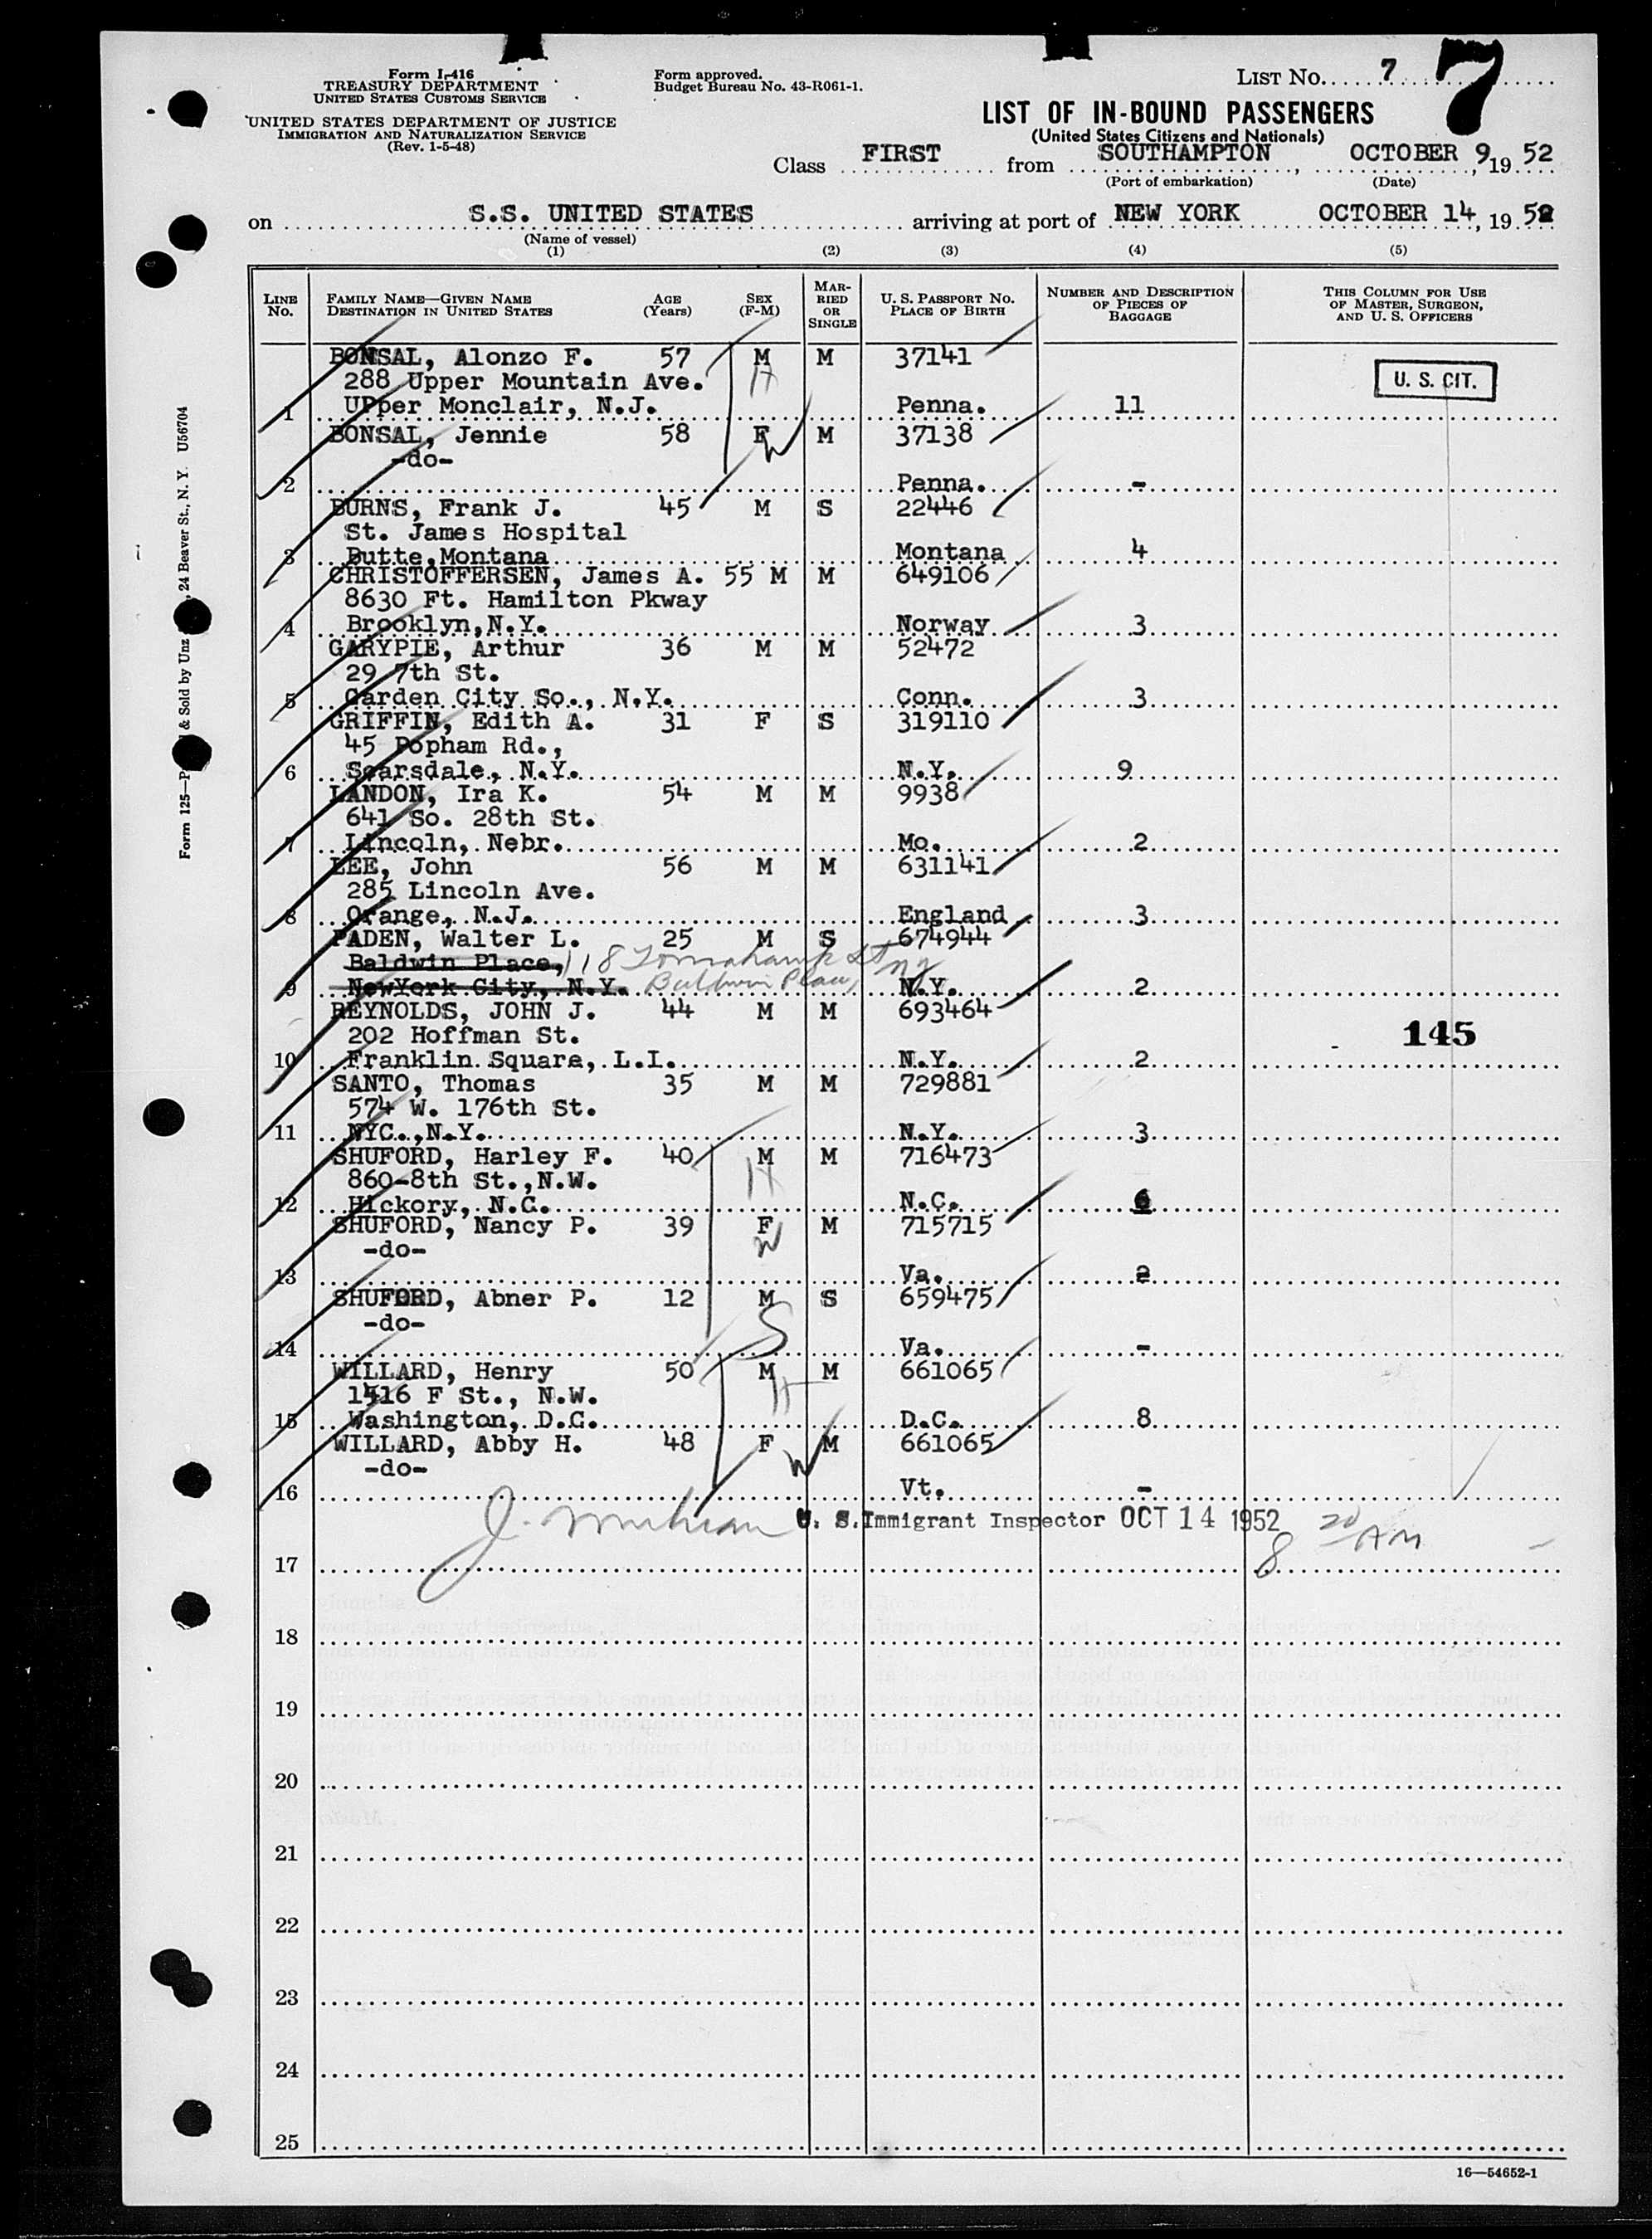 Form I-416
TREASURY DEPARTMENT
UNITED STATES CUSTOMS SERVICE
UNITED STATES DEPARTMENT OF JUSTICE
IMMIGRATION AND NATURALIZATION SERVICE
(Rev. 1-5-48)
Form approved.
Budget Bureau No. 43-R061-1.
LIST No. 7
7
LIST OF IN-BOUND PASSENGERS
(United States Citizens and Nationals)
Class FIRST from SOUTHAMPTON, OCTOBER 9, 19 52
(Port of embarkation) (Date)
on S.S. UNITED STATES arriving at port of NEW YORK OCTOBER 14, 19 52
(Name of vessel)
(1) (2) (3) (4) (5)
LINE No. FAMILY NAME—GIVEN NAME DESTINATION IN UNITED STATES AGE (Years) SEX (F-M) MARRIED OR SINGLE U. S. PASSPORT No. PLACE OF BIRTH NUMBER AND DESCRIPTION OF PIECES OF BAGGAGE THIS COLUMN FOR USE OF MASTER, SURGEON, AND U. S. OFFICERS
BONSAL, Alonzo F. 57 M M 37141
288 Upper Mountain Ave. H U. S. CIT.
1 UPper Monclair, N.J. Penna. 11
BONSAL, Jennie 58 F M 37138
-do- W
2 Penna. -
BURNS, Frank J. 45 M S 22446
St. James Hospital
3 Butte,Montana Montana 4
CHRISTOFFERSEN, James A. 55 M M 649106
8630 Ft. Hamilton Pkway
4 Brooklyn,N.Y. Norway 3
GARYPIE, Arthur 36 M M 52472
29 7th St.
5 Garden City So., N.Y. Conn. 3
GRIFFIN, Edith A. 31 F S 319110
45 Popham Rd.,
6 Scarsdale, N.Y. N.Y. 9
LANDON, Ira K. 54 M M 9938
641 So. 28th St.
7 Lincoln, Nebr. Mo. 2
LEE, John 56 M M 631141
285 Lincoln Ave.
8 Orange, N.J. England 3
PADEN, Walter L. 25 M S 674944
Baldwin Place, 118 Tomahawk St
9 NewYork City, N.Y. Baldwin Place, NY N.Y. 2
REYNOLDS, JOHN J. 44 M M 693464
202 Hoffman St. 145
10 Franklin Square, L.I. N.Y. 2
SANTO, Thomas 35 M M 729881
574 W. 176th St.
11 NYC.,N.Y. N.Y. 3
SHUFORD, Harley F. 40 M M 716473
860-8th St.,N.W. H
12 Hickory, N.C. N.C. 6
SHUFORD, Nancy P. 39 F M 715715
-do- W
13 Va. 2
SHUFORD, Abner P. 12 M S 659475
-do- S
14 Va. -
WILLARD, Henry 50 M M 661065
1416 F St., N.W. H
15 Washington, D.C. D.C. 8
WILLARD, Abby H. 48 F M 661065
-do- W
16 Vt. -
U. S. Immigrant Inspector OCT 14 1952 8 20 AM
17
18
19
20
21
22
23
24
25
16—54652-1
Form 125—P & Sold by Unz , 24 Beaver St., N. Y. U56704